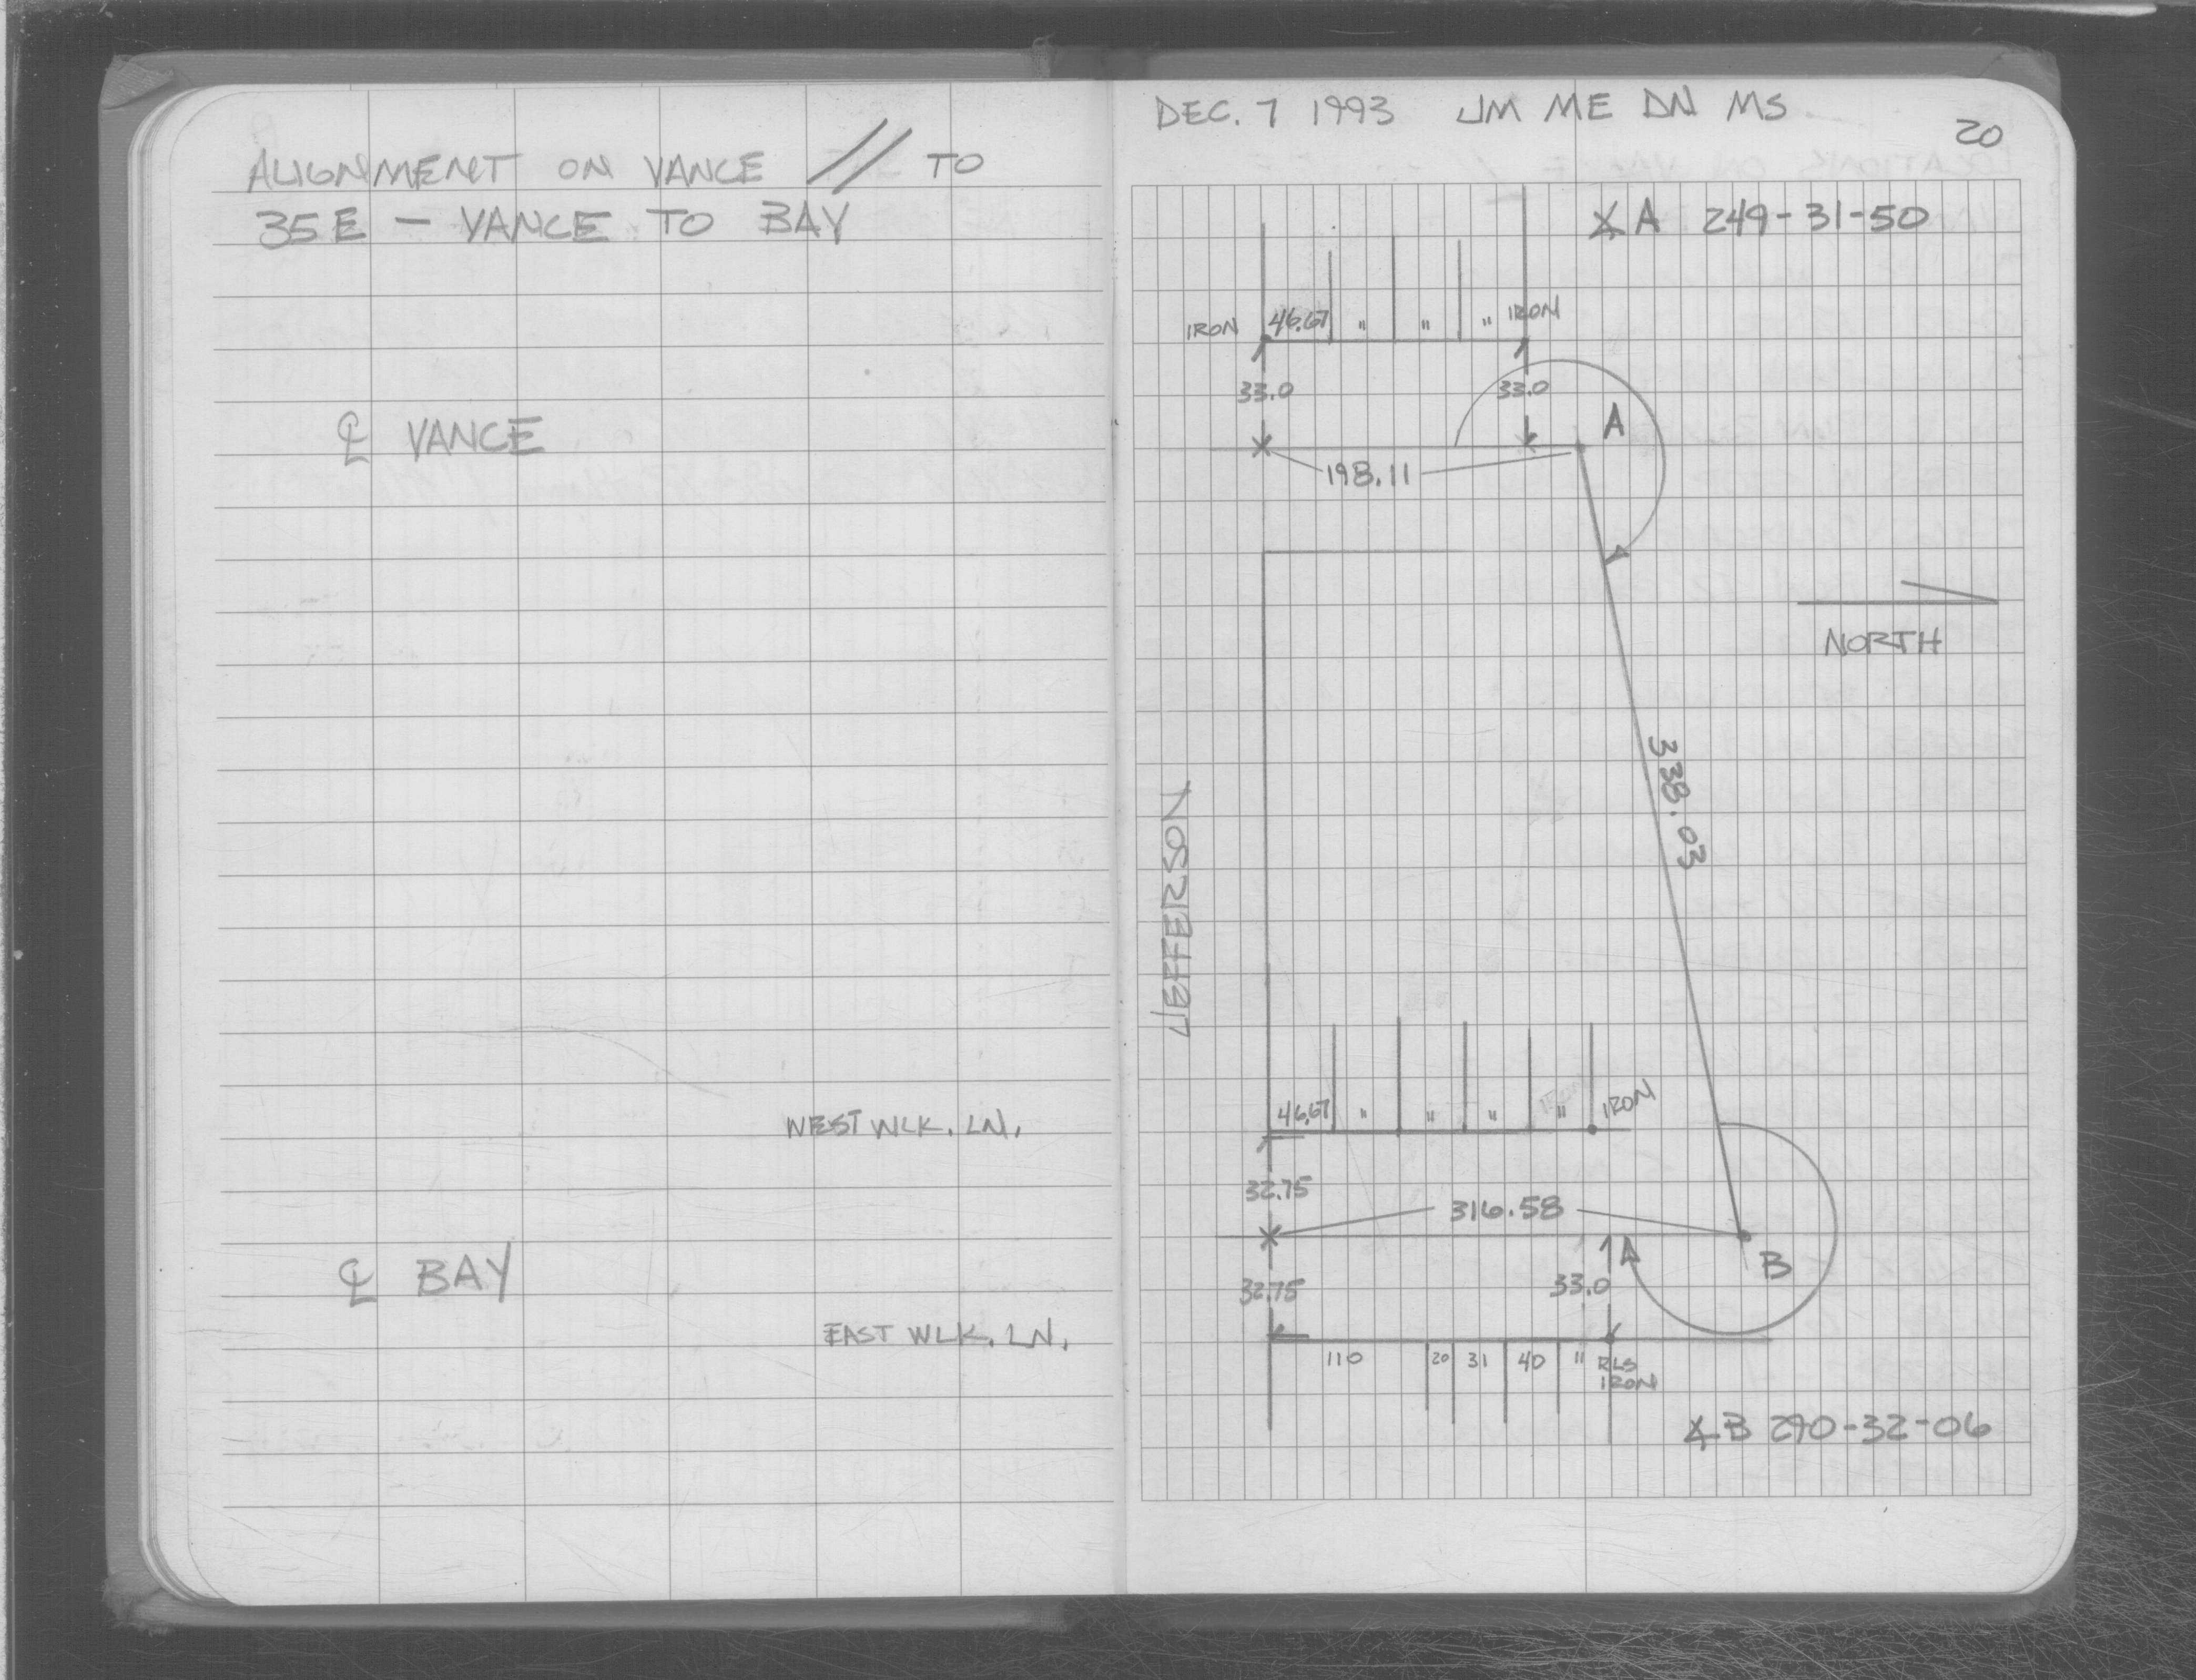 ALIGNMENT ON VANCE // TO
35E - VANCE TO BAY
℄ VANCE
WEST WLK. LN.
℄ BAY
EAST WLK. LN.
DEC. 7 1993 JM ME DN MS
20
∡A 249-31-50
IRON 46.67 " " " IRON
33.0 33.0
A
198.11
NORTH
338.03
JEFFERSON
46.67 " " " " IRON
32.75
316.58
B
32.75 33.0
110 20 31 40 " RLS
IRON
∡B 290-32-06